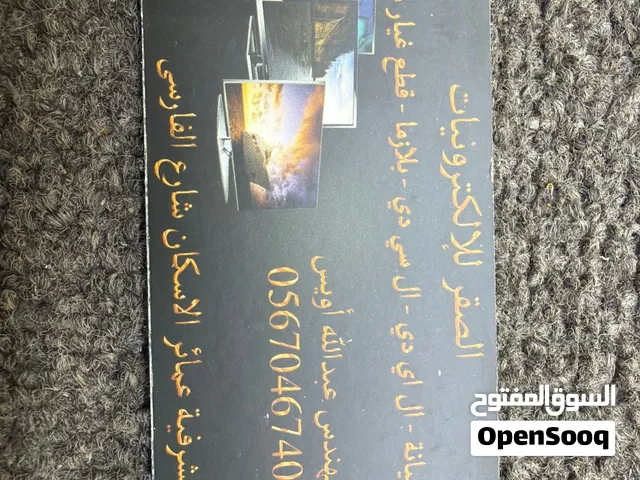 الصقر للإلكترونيات
يانة - ال اي دي - ال سي دي - بلازما - قطع غيار
هندس عبدالله أويس
0567046740
شرفية عمائر الاسكان شارع الفارسى
السوق المفتوح
OpenSooq